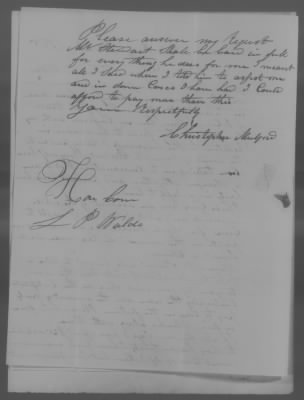 Please answer my Request
Mr Steward Shale be Paid in full
for everything he does for me I meant
all I Said when I told him to asist me
and in some Cases I have had I Could
afford to pay more than this
Yours Respectfully
Christopher Mulford
Hon Com
L P Waldo